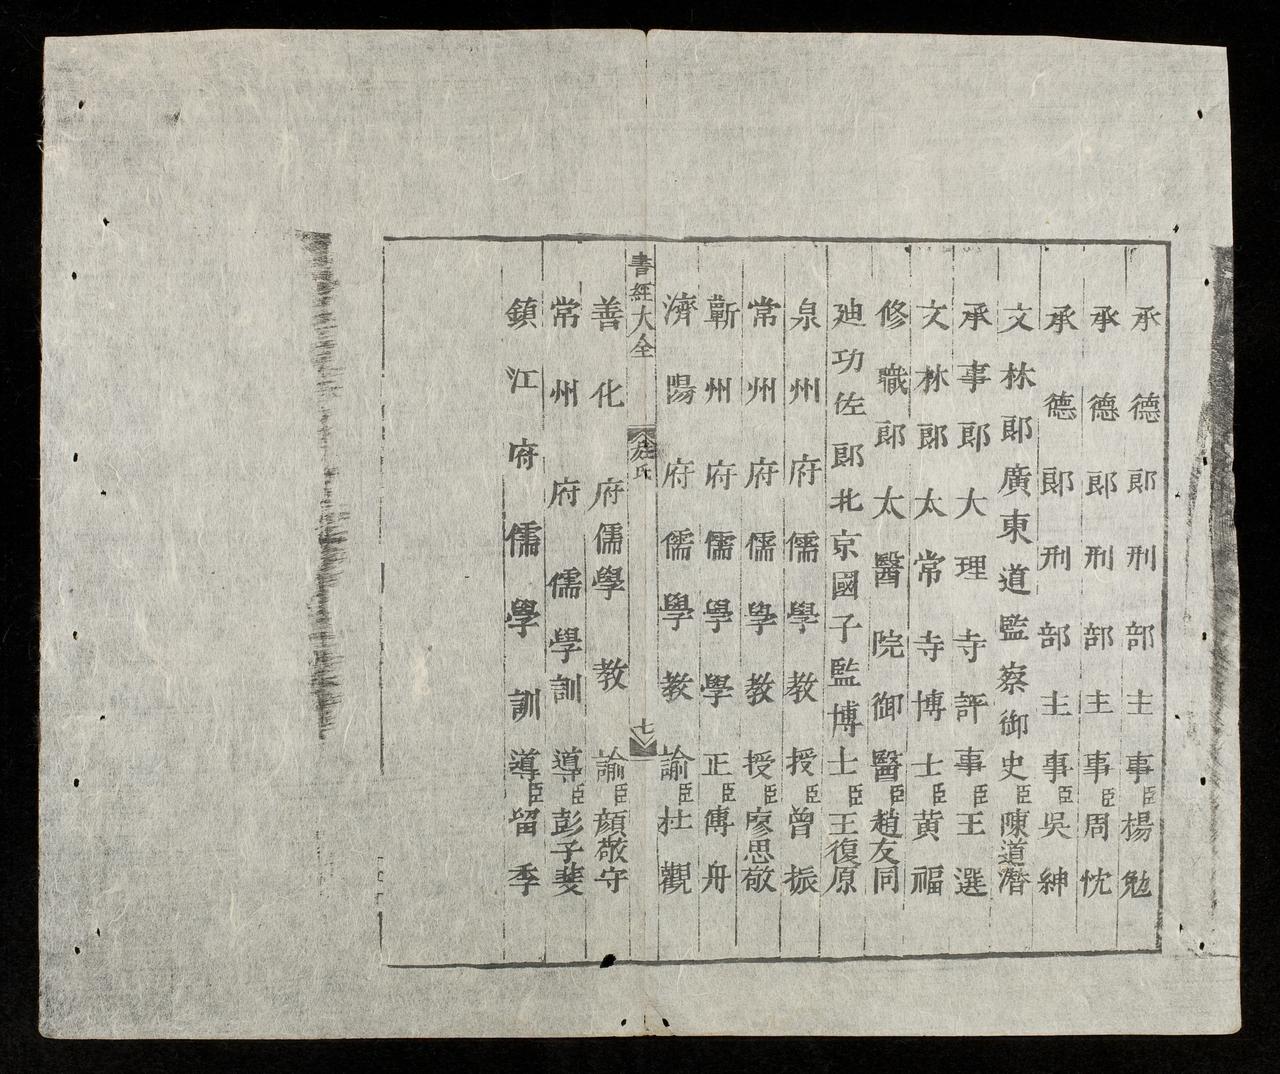 承德郎刑部主事臣楊勉
承德郎刑部主事臣周忱
承德郎刑部主事臣吳紳
文林郎廣東道監察御史臣陳道潛
承事郎大理寺評事臣王選
文林郎太常寺博士臣黃福
修職郎太醫院御醫臣趙友同
迪功佐郎北京國子監博士臣王復原
泉州府儒學教授臣曾振
常州府儒學教授臣廖思敬
蘄州府儒學學正臣傅舟
濟陽府儒學教諭臣杜觀
書經大全
氏
七
善化府儒學教諭臣顏敬守
常州府儒學訓導臣彭子斐
鎮江府儒學訓導臣留季